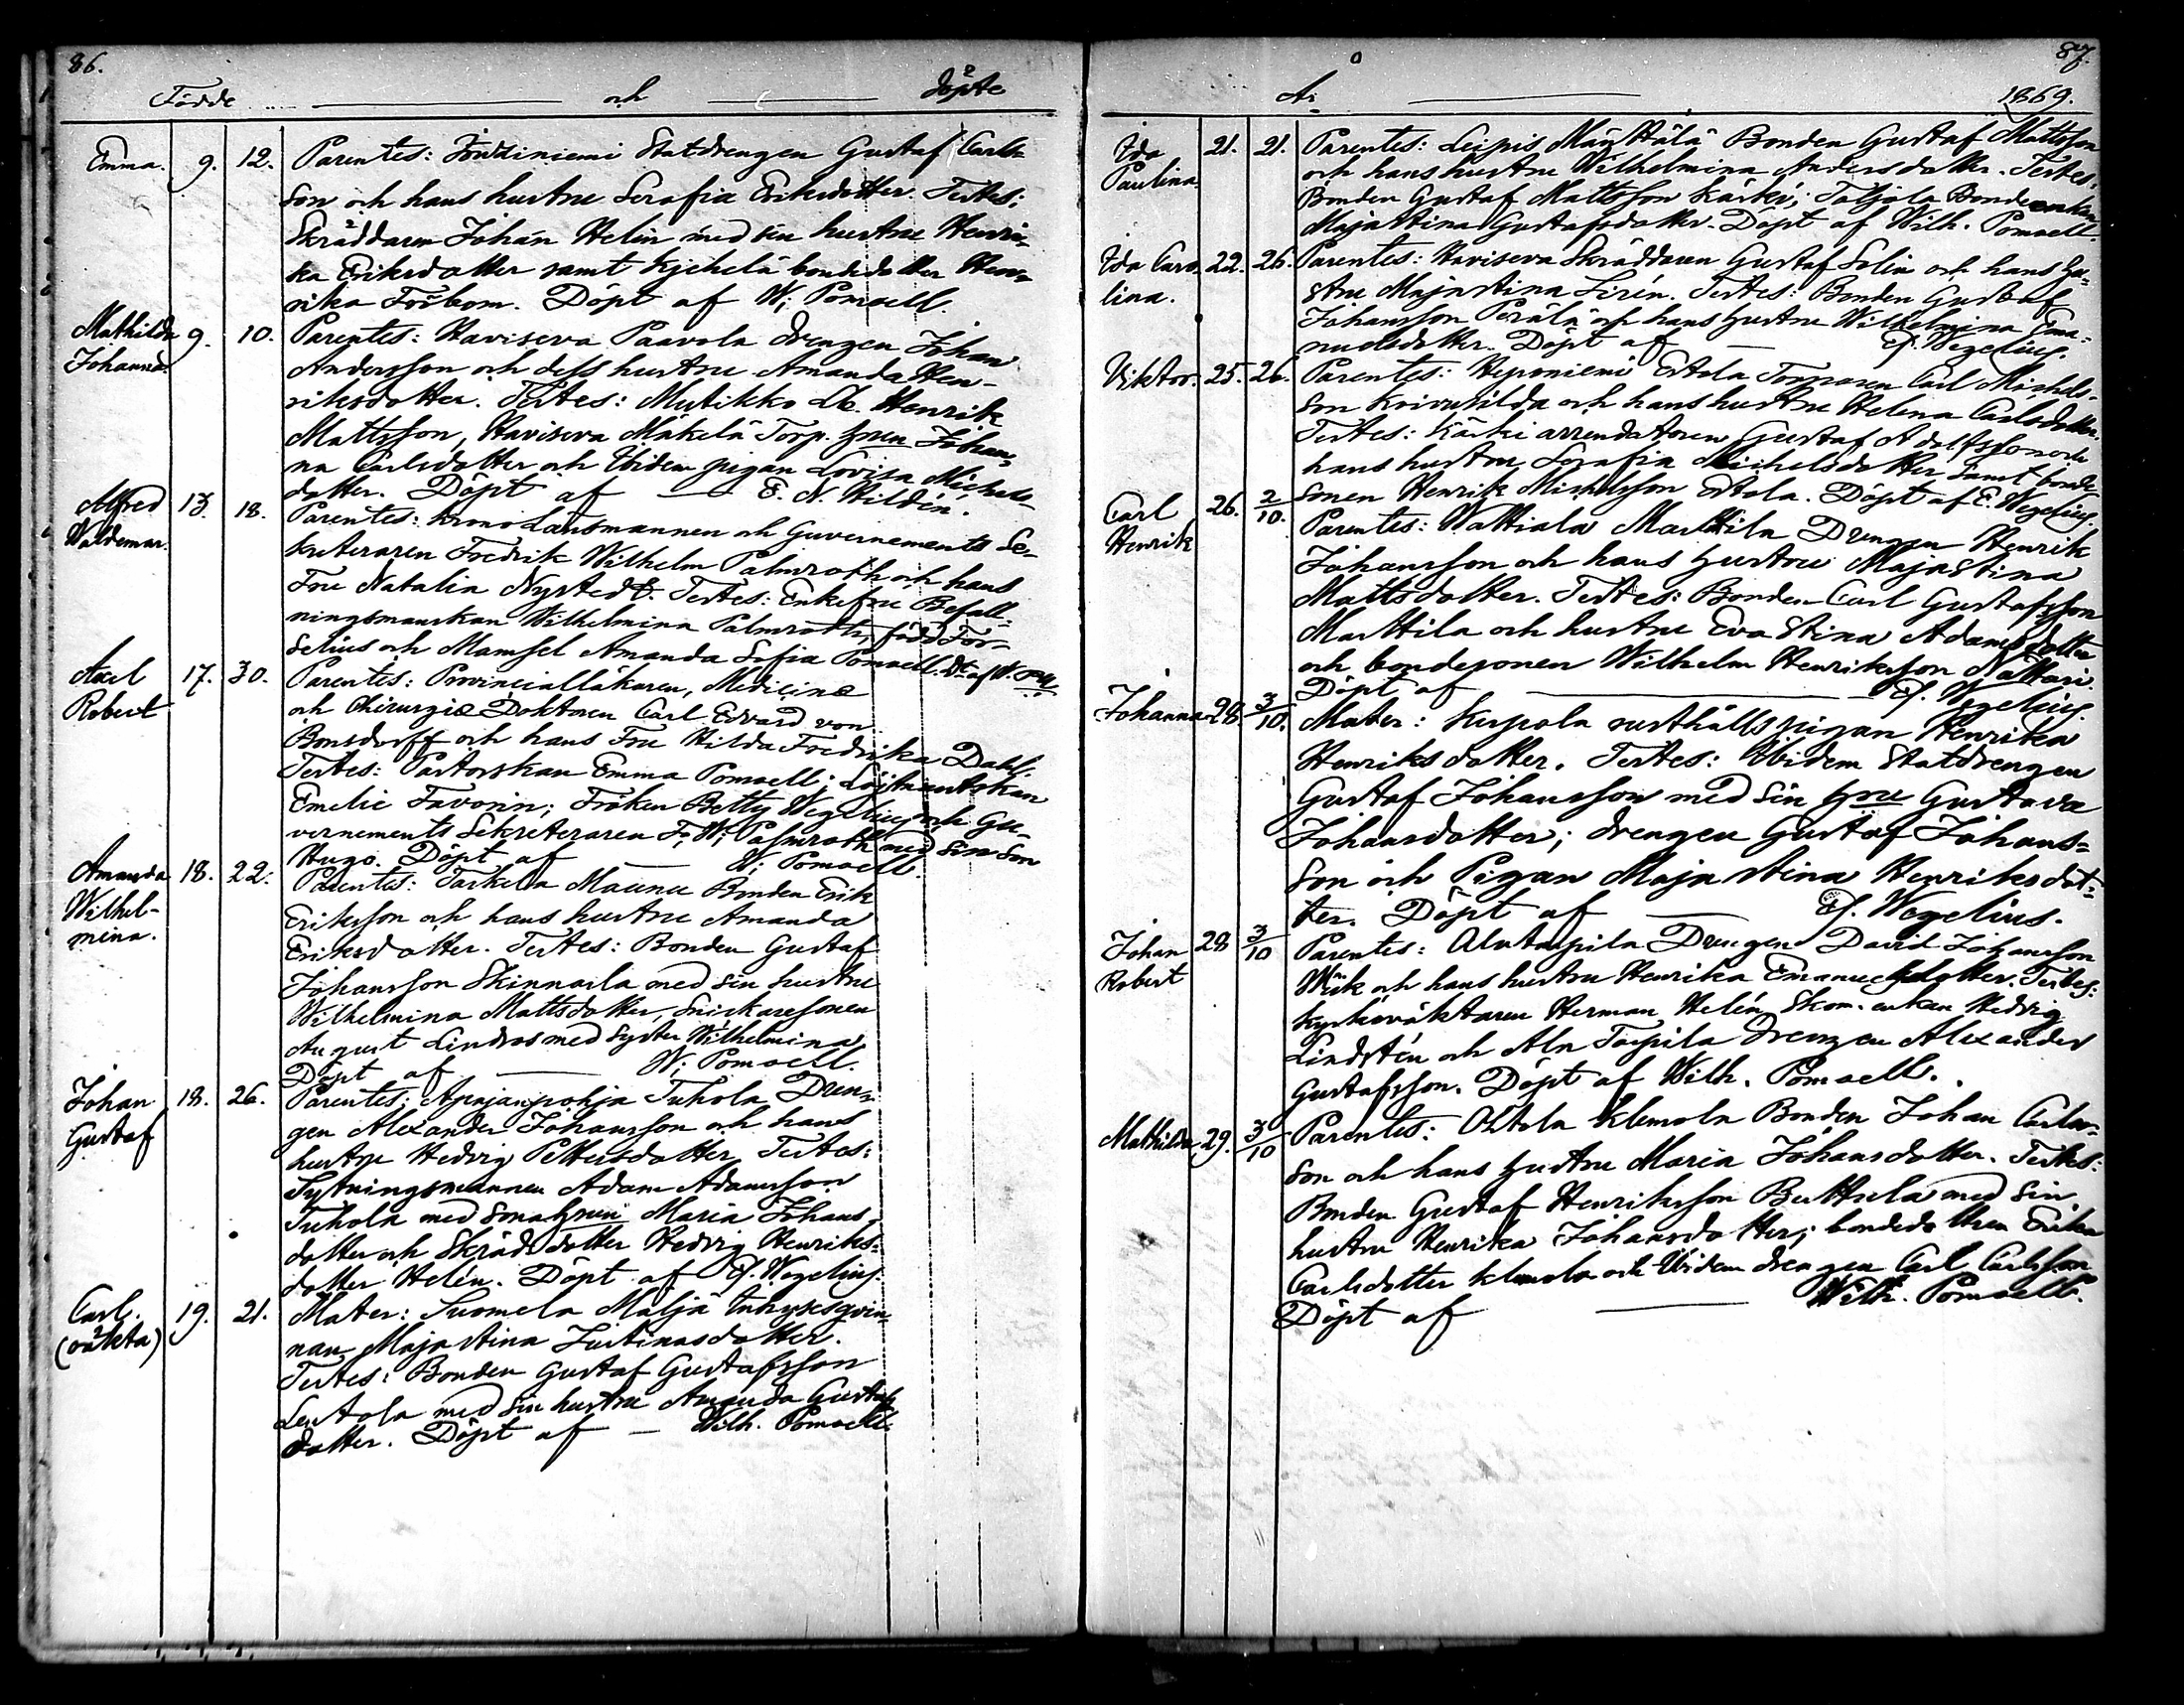 86.
Födde och döpte
Emma. 9. 12. Parentes: Statdrengen Gustaf Carls-
son och hans hustru Serafia Eriksdotter. Testes:
Skräddaren Johan Helin med sin hustru Henri-
ka Eriksdotter samt Kjehelä bondedotter Hen-
rika Forsbom. Döpt af W. Pomoell.
Mathilda 9. 10. Parentes: Haviseva Paavola drengen Johan
Johanna Andersson och dess hustru Amanda Hen-
riksdotter. Testes: Mutikko Henrik
Mattsson, Haviseva Mäkelä Torp. hru Johan-
na Carlsdotter och Ibidem pigan Lovisa Michels-
dotter. Döpt af — E. N. Hildén.
Alfred 13. 18. Parentes: Krono Länsmannen och Guvernements Se-
Waldemar. kreteraren Fredrik Wilhelm Palmroth och hans
Fru Natalia Nystedt. Testes: Enkefru Befall-
ningsmanskan Wilhelmina Palmroth, född For-
selius och Mamsel Amanda Sofia Pomoell. Dt af W. P.
Axel 17. 30. Parentes: Provincialläkaren, Medicinæ
Robert och Chirurgiæ Doktoren Carl Edvard von
Bonsdorff och hans Fru Hilda Fredrika Dahl.
Testes: Pastorskan Emma Pomoell; Löjtnantskan
Emelie Favorin; Fröken Betty Wegelius och Gu-
vernements Sekreteraren F. W. Palmroth med sin son
Hugo. Döpt af — W. Pomoell.
Amanda 18. 22. Parentes: Taskela Maunu Bonden Erik
Wilhel- Eriksson och hans hustru Amanda
mina. Eriksdotter. Testes: Bonden Gustaf
Johansson Skinnarla med sin hustru
Wilhelmina Mattsdotter, Snickaresonen
August Lindros med syster Wilhelmina,
Döpt af — W. Pomoell.
Johan 18. 26. Parentes: Apajanpohja Tuhola Dren-
Gustaf gen Alexander Johansson och hans
hustru Hedvig Pettersdotter. Testes:
Sytningsmannen Adam Adamsson
Tuhola med sonahrun Maria Johans-
dotter och Skrädd dotter Hedvig Henriks-
dotter Helén. Döpt af E. Wegelius.
Carl. 19. 21. Mater: Suomela Maljä Inhysesqvin-
(oäkta) nan Majastina Justinasdotter.
Testes: Bonden Gustaf Gustafsson
Lentola med sin hustru Amanda Gustafs
dotter. Döpt af — Wilh. Pomoell.
87.
År 1869.
Ida 21. 21. Parentes: Leipis Mäyttälä Bonden Gustaf Mattsson
Paulina. och hans hustru Wilhelmina Andersdotter. Testes:
Bonden Gustaf Mattsson Kärki; Taljola Bondeenkan
Majastina Gustafsdotter. Döpt af Wilh. Pomoell.
Ida Caro- 22. 26. Parentes: Haviseva Skräddaren Gustaf Solin och hans hu-
lina. stru Majastina Sirén. Testes: Bonden Gustaf
Johansson Perälä och hans hustru Wilhelmina Ema-
nuelsdotter. Döpt af — E. Wegelius.
Viktor. 25. 26. Parentes: Heponiemi Ertola Torparen Carl Michels-
son Koivuhilda och hans hustru Helena Carlsdotter.
Testes: Kärki arrendatoren Gustaf Adolfsson och
hans hustru Serafia Michelsdotter, samt bonde-
sonen Henrik Michelsson Ertola. Döpt af E. Wegelius.
Carl 26. 2/10. Parentes: Wattiala Marttila Drengen Henrik
Henrik Johansson och hans hustru Majastina
Mattsdotter. Testes: Bonden Carl Gustafsson
Marttila och hustru Eva Stina Adamsdotter
och bondesonen Wilhelm Henriksson Nattari.
Döpt af — E. Wegelius.
Johanna 28. 3/10. Mater: Kerpola rusthålls pigan Henrika
Henriksdotter. Testes: Ibidem Statdrengen
Gustaf Johansson med sin hru Gustava
Johansdotter; drengen Gustaf Johans-
son och Pigan Maja Stina Henriksdot-
ter. Döpt af — E. Wegelius.
Johan 28 3/10 Parentes: Drengen David Johansson
Robert Wiik och hans hustru Henrika Emanuelsdotter. Testes:
Kyrkioväktaren Herman Helén, Skom. enkan Hedvig
Lindstén och Aln Taipila drengen Alexander
Gustafsson. Döpt af Wilh. Pomoell.
Mathilda 29. 3/10 Parentes: Ohtola Klemola Bonden Johan Carls-
son och hans hustru Maria Johansdotter. Testes:
Bonden Gustaf Henriksson Perttula med sin
hustru Henrika Johansdotter; bondedottren Erika
Carlsdotter Klemola och Ibidem drengen Carl Carlsson
Döpt af — Wilh. Pomoell.